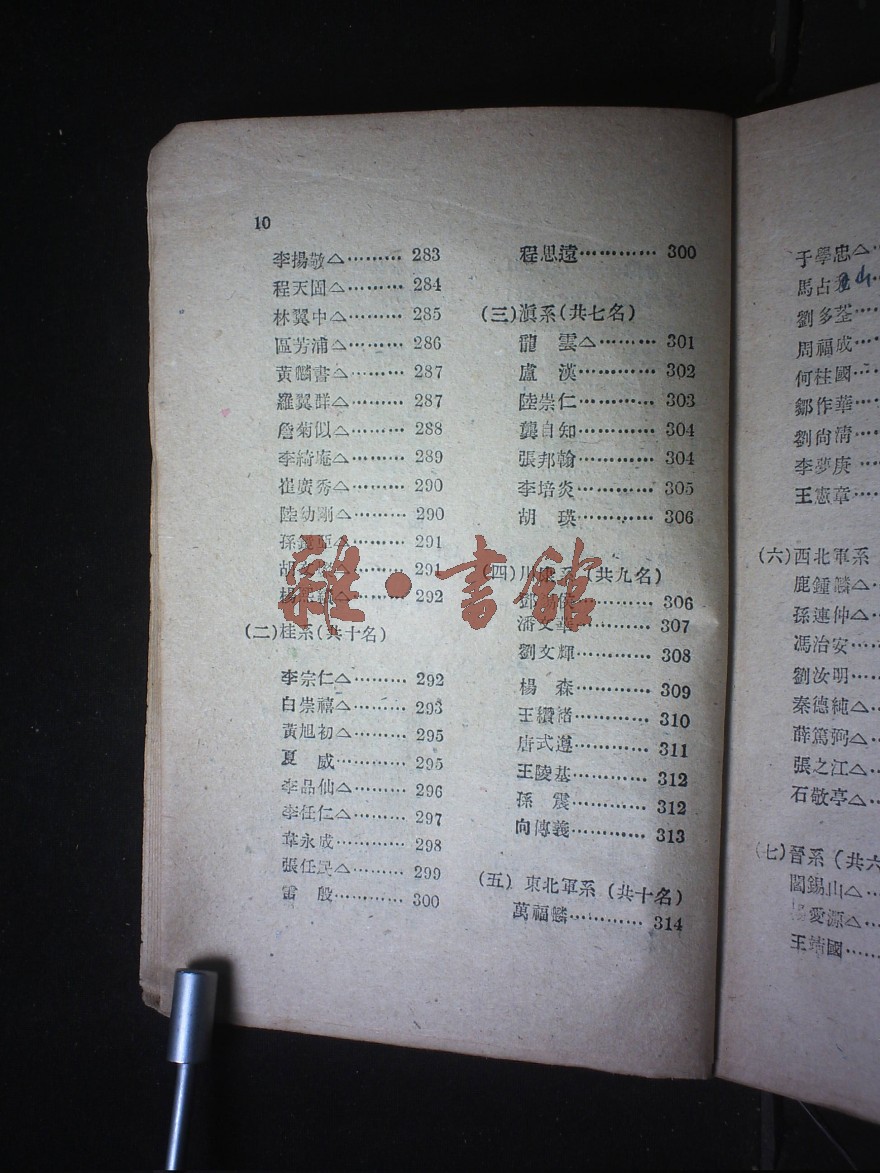 10
李揚敬△……… 283
程天固△……… 284
林翼中△……… 285
區芳浦△……… 286
黃麟書△……… 287
羅翼群△……… 287
詹菊似△……… 288
李綺庵△……… 289
崔廣秀△……… 290
陸幼剛△……… 290
孫 △……… 291
胡 △……… 291
楊 △……… 292
(二)桂系(共十名)
李宗仁△……… 292
白崇禧△……… 293
黃旭初△……… 295
夏　威………… 295
李品仙△……… 296
李任仁△……… 297
韋永成………… 298
張任民△……… 299
雷　殷………… 300
程思遠………… 300
(三)滇系(共七名)
龍　雲△……… 301
盧　漢………… 302
陸崇仁………… 303
龔自知………… 304
張邦翰………… 304
李培炎………… 305
胡　瑛………… 306
(四)川康系(共九名)
鄧錫侯………… 306
潘文華………… 307
劉文輝………… 308
楊　森………… 309
王纘緒………… 310
唐式遵………… 311
王陵基………… 312
孫　震………… 312
向傳義………… 313
(五) 東北軍系 (共十名)
萬福麟………… 314
于學忠△…
馬占山
劉多荃…
周福成…
何柱國…
鄒作華…
劉尚清…
李夢庚…
王憲章…
(六)西北軍系
鹿鍾麟△…
孫連仲△…
馮治安…
劉汝明…
秦德純△…
薛篤弼△…
張之江△…
石敬亭△…
(七)晉系 (共六
閻錫山△…
愛源△…
王靖國…
雜·書館